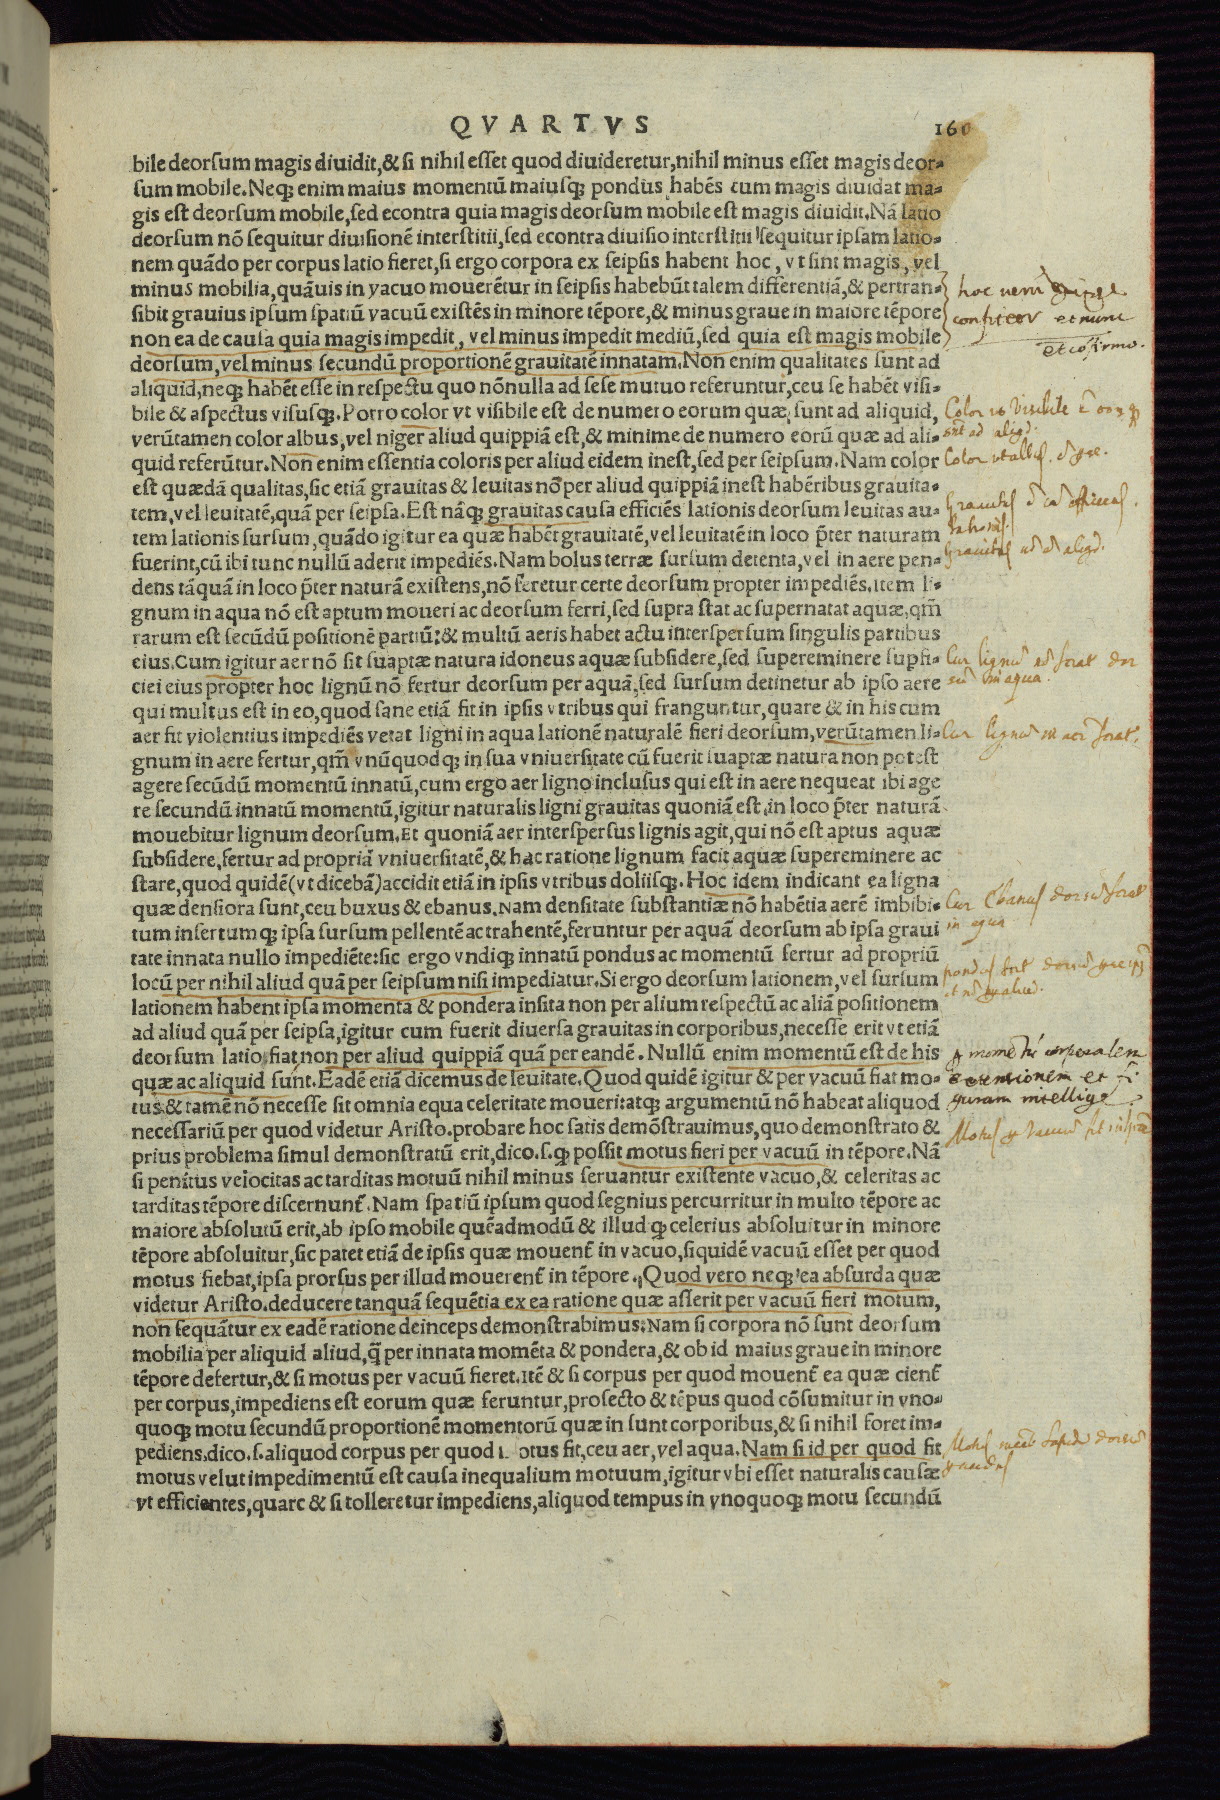 QVARTVS
160
bile deorsum magis diuidit,& si nihil esset quod diuideretur,nihil minus esset magis deor-
sum mobile.Neqꝫ enim maius momentũ maiusqꝫ pondus habẽs cum magis diuidat ma-
gis est deorsum mobile,sed econtra quia magis deorsum mobile est magis diuidit.Nã latio
deorsum nõ sequitur diuisionẽ interstitii,sed econtra diuisio interstitii sequitur ipsam latio-
nem quãdo per corpus latio fieret,si ergo corpora ex seipsis habent hoc, vt sint magis, vel
minus mobilia,quãuis in vacuo mouerẽtur in seipsis habebũt talem differentiã,& pertran-
sibit grauius ipsum spatiũ vacuũ existẽs in minore tẽpore,& minus graue in maiore tẽpore
non ea de causa quia magis impedit, vel minus impedit mediũ,sed quia est magis mobile
deorsum,vel minus secundũ proportionẽ grauitatẽ innatam.Non enim qualitates sunt ad
aliquid,neqꝫ habẽt esse in respectu quo nõnulla ad sese mutuo referuntur,ceu se habẽt visi-
bile & aspectus visusqꝫ.Porro color vt visibile est de numero eorum quæ sunt ad aliquid,
verũtamen color albus,vel niger aliud quippiã est,& minime de numero eorũ quæ ad ali-
quid referũtur.Non enim essentia coloris per aliud eidem inest,sed per seipsum.Nam color
est quædã qualitas,sic etiã grauitas & leuitas nõ per aliud quippiã inest habẽtibus grauita-
tem,vel leuitatẽ,quã per seipsa.Est nãqꝫ grauitas causa efficiẽs lationis deorsum leuitas au-
tem lationis sursum,quãdo igitur ea quæ habẽt grauitatẽ,vel leuitatẽ in loco p̃ter naturam
fuerint,cũ ibi tunc nullũ aderit impediẽs.Nam bolus terræ sursum detenta,vel in aere pen-
dens tãquã in loco p̃ter naturã existens,nõ feretur certe deorsum propter impediẽs.item li-
gnum in aqua nõ est aptum moueri ac deorsum ferri,sed supra stat ac supernatat aquæ,qm̃
rarum est secũdũ positionẽ partiũ:& multũ aeris habet actu interspersum singulis partibus
eius.Cum igitur aer nõ sit suaptæ natura idoneus aquæ subsidere,sed supereminere supfi-
ciei eius propter hoc lignũ nõ fertur deorsum per aquã,sed sursum detinetur ab ipso aere
qui multus est in eo,quod sane etiã fit in ipsis vtribus qui franguntur,quare & in his cum
aer fit violentius impediẽs vetat ligni in aqua lationẽ naturalẽ fieri deorsum,verũtamen li-
gnum in aere fertur,qm̃ vnũquodqꝫ in sua vniuersitate cũ fuerit suaptæ natura non potest
agere secũdũ momentũ innatũ,cum ergo aer ligno inclusus qui est in aere nequeat ibi age
re secundũ innatũ momentũ,igitur naturalis ligni grauitas quoniã est in loco p̃ter naturã
mouebitur lignum deorsum.Et quoniã aer interspersus lignis agit,qui nõ est aptus aquæ
subsidere,fertur ad propriã vniuersitatẽ,& hac ratione lignum facit aquæ supereminere ac
stare,quod quidẽ(vt dicebã)accidit etiã in ipsis vtribus doliisqꝫ.Hoc idem indicant ea ligna
quæ densiora sunt,ceu buxus & ebanus.Nam densitate substantiæ nõ habẽtia aerẽ imbibi-
tum insertumqꝫ ipsa sursum pellentẽ ac trahentẽ,feruntur per aquã deorsum ab ipsa graui
tate innata nullo impediẽte:sic ergo vndiqꝫ innatũ pondus ac momentũ fertur ad propriũ
locũ per nihil aliud quã per seipsum nisi impediatur.Si ergo deorsum lationem,vel sursum
lationem habent ipsa momenta & pondera insita non per alium respectũ ac aliã positionem
ad aliud quã per seipsa,igitur cum fuerit diuersa grauitas in corporibus,necesse erit vt etiã
deorsum latio fiat non per aliud quippiã quã per eandẽ.Nullũ enim momentũ est de his
quæ ac aliquid sunt.Eadẽ etiã dicemus de leuitate.Quod quidẽ igitur & per vacuũ fiat mo-
tus & tamẽ nõ necesse sit omnia equa celeritate moueri atqꝫ argumentũ nõ habeat aliquod
necessariũ per quod videtur Aristo.probare hoc satis demõstrauimus,quo demonstrato &
prius problema simul demonstratũ erit,dico.s.qꝫ possit motus fieri per vacuũ in tẽpore.Nã
si penitus velocitas ac tarditas motuũ nihil minus seruantur existente vacuo,& celeritas ac
tarditas tẽpore discernunt̃.Nam spatiũ ipsum quod segnius percurritur in multo tẽpore ac
maiore absolutũ erit,ab ipso mobile quẽadmodũ & illud qꝫ celerius absoluitur in minore
tẽpore absoluitur,sic patet etiã de ipsis quæ mouent̃ in vacuo,siquidẽ vacuũ esset per quod
motus fiebat,ipsa prorsus per illud mouerent̃ in tẽpore. Quod vero neqꝫ ea absurda quæ
videtur Aristo.deducere tanquã sequẽtia ex ea ratione quæ asserit per vacuũ fieri motum,
non sequãtur ex eadẽ ratione deinceps demonstrabimus:Nam si corpora nõ sunt deorsum
mobilia per aliquid aliud,q̃ per innata momẽta & pondera,& ob id maius graue in minore
tẽpore defertur,& si motus per vacuũ fieret.itẽ & si corpus per quod mouent̃ ea quæ cient̃
per corpus,impediens est eorum quæ feruntur,profecto & tẽpus quod cõsumitur in vno-
quoqꝫ motu secundũ proportionẽ momentorũ quæ in sunt corporibus,& si nihil foret im-
pediens,dico.s.aliquod corpus per quod otus fit,ceu aer,vel aqua.Nam si id per quod fit
motus velut impedimentũ est causa inequalium motuum,igitur vbi esset naturalis causæ
vt efficientes,quare & si tolleretur impediens,aliquod tempus in vnoquoqꝫ motu secundũ
hoc
confiteor et nunc
Color visibile
sunt ad
Color
Cur lignũ nõ
in aqua
Cur lignũ in aere
Cur Ebanus deorsũ
in aqua
corporalem
extensionem et fi-
guram intellige